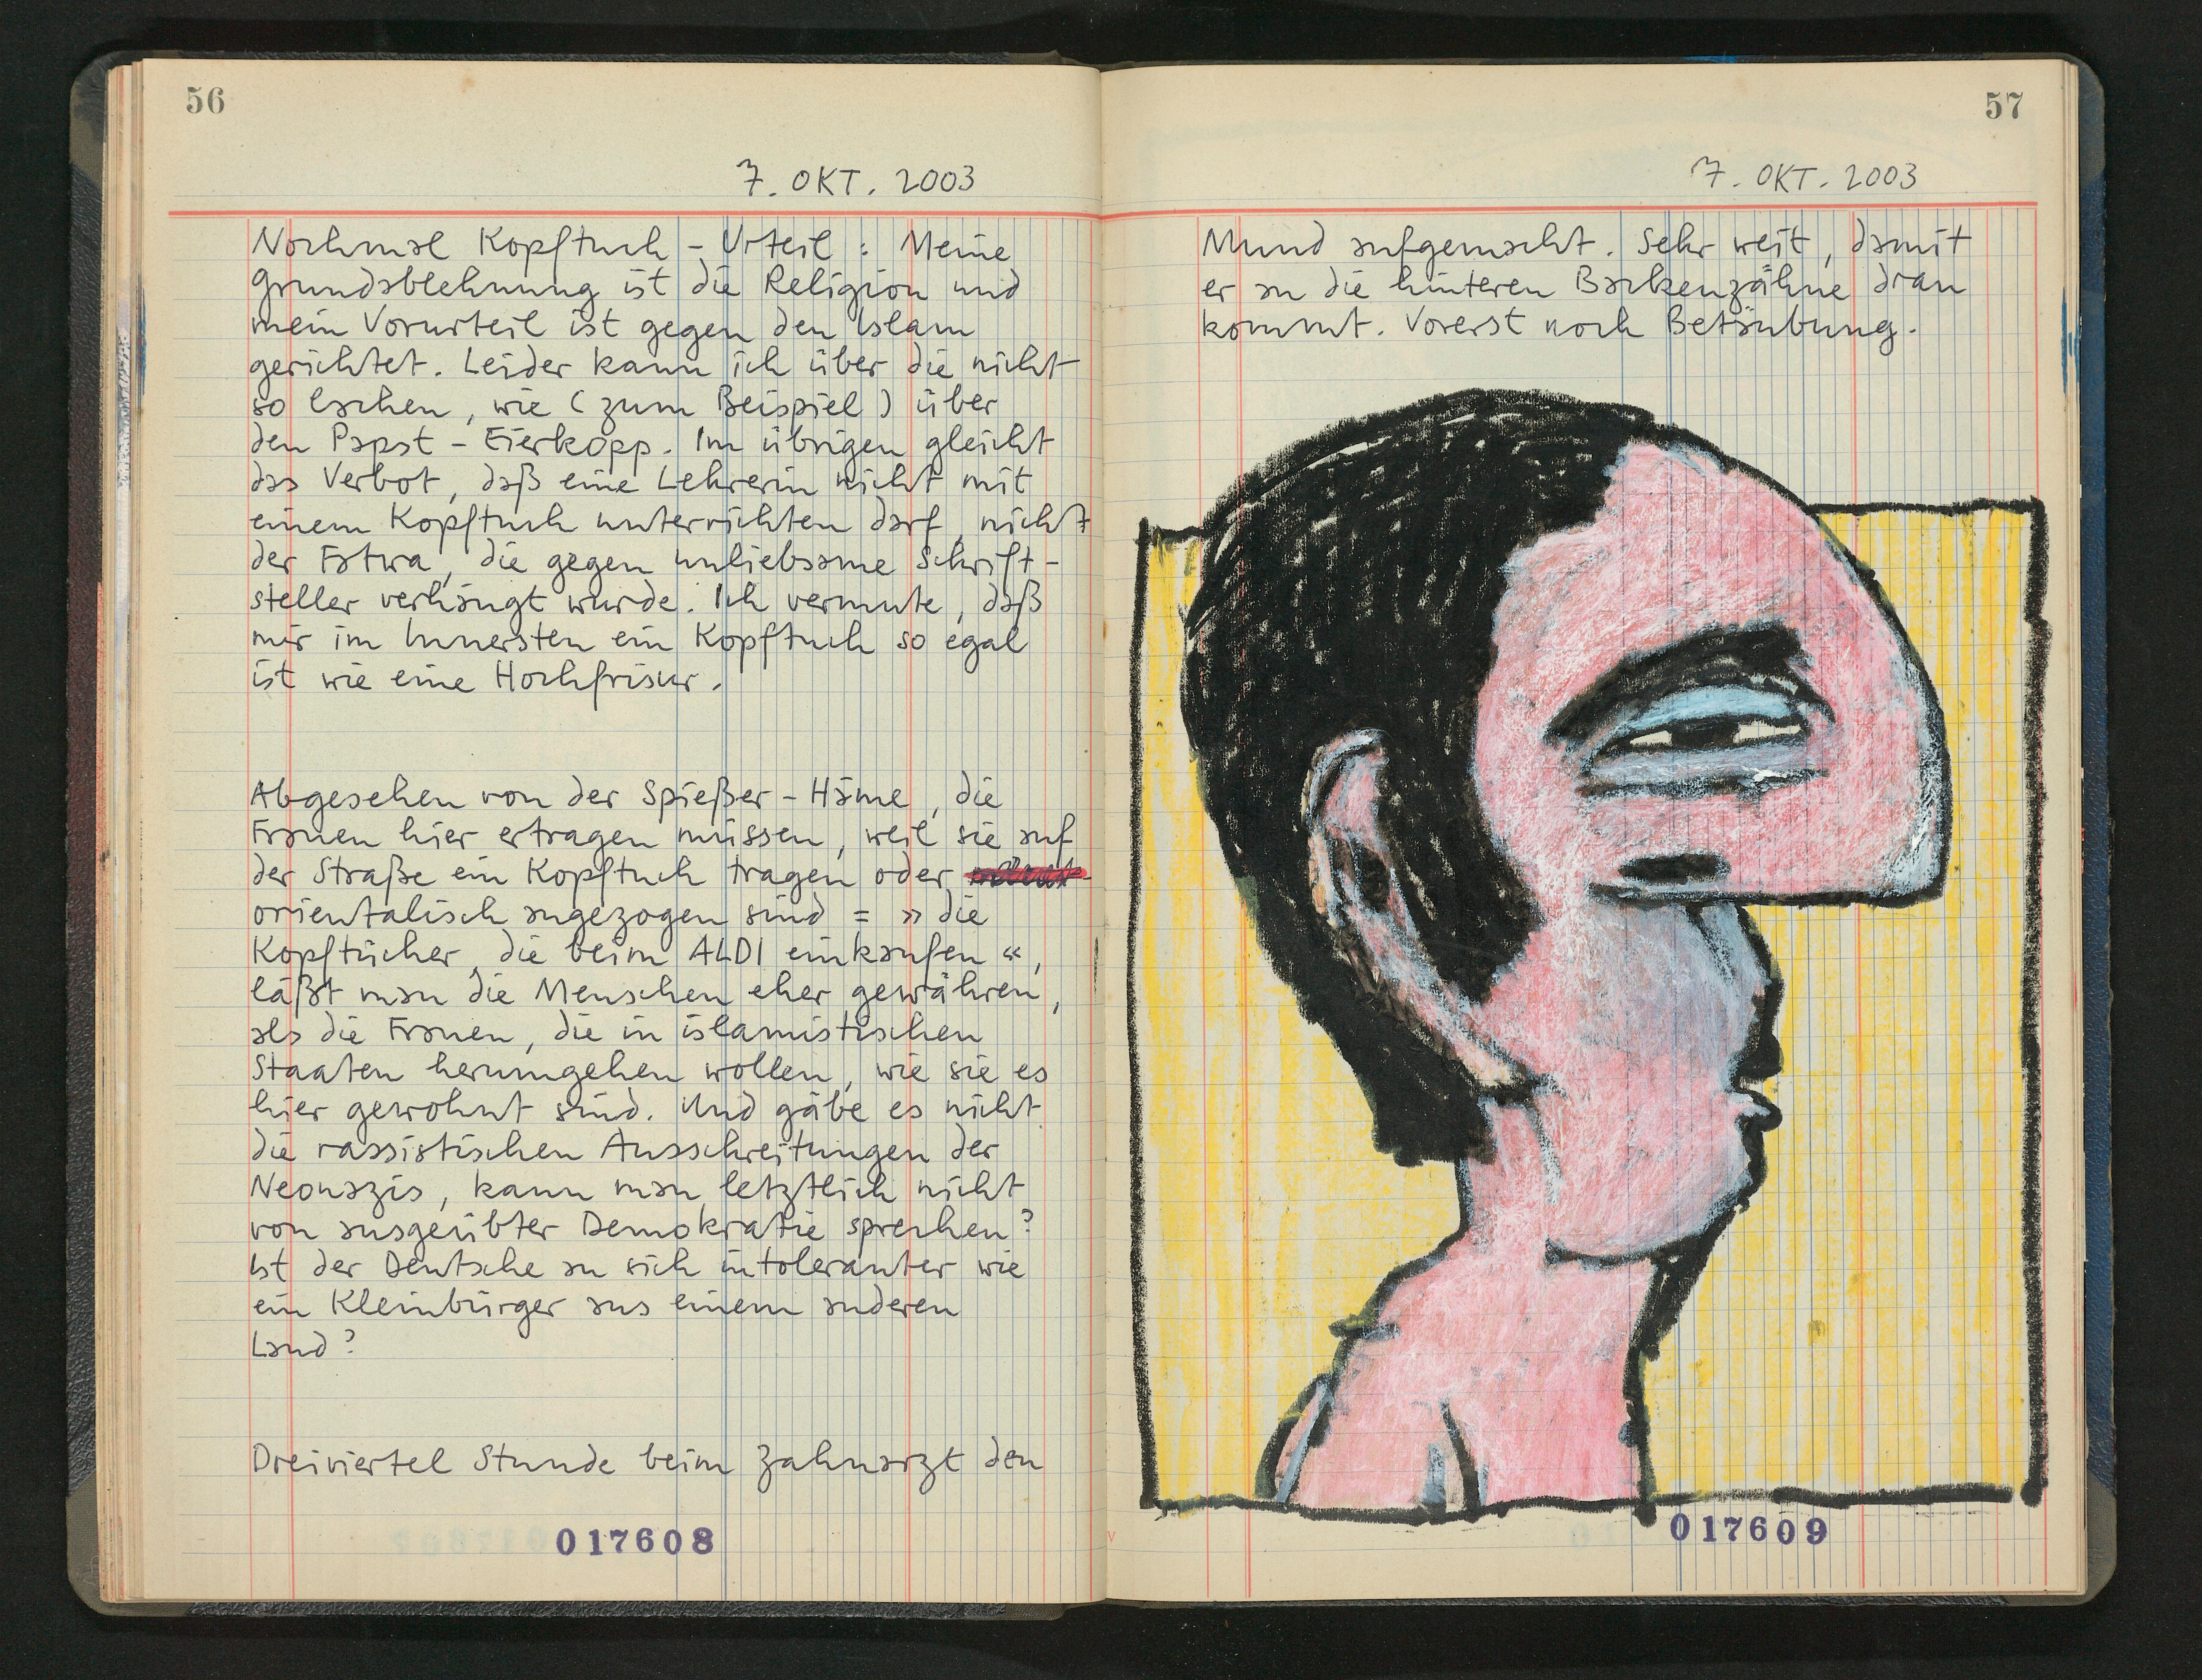 56
7. OKT. 2003
Nochmal Kopftuch - Urteil : Meine
Grundablehnung ist die Religion und
mein Vorurteil ist gegen den Islam
gerichtet. Leider kann ich über die nicht
so lachen, wie (zum Beispiel) über
den Papst - Eierkopp. Im übrigen gleicht
das Verbot, daß eine Lehrerin nicht mit
einem Kopftuch unterrichten darf, nicht
der Fatwa, die gegen unliebsame Schrift-
steller verhängt wurde. Ich vermute, daß
mir im Innersten ein Kopftuch so egal
ist wie eine Hochfrisur.
Abgesehen von der Spießer - Häme, die
Frauen hier ertragen müssen, weil sie auf
der Straße ein Kopftuch tragen oder
orientalisch angezogen sind = » die
Kopftücher, die beim ALDI einkaufen «,
läßt man die Menschen eher gewähren,
als die Frauen, die in islamistischen
Staaten herumgehen wollen, wie sie es
hier gewohnt sind. Und gäbe es nicht
die rassistischen Ausschreitungen der
Neonazis, kann man letztlich nicht
von ausgeübter Demokratie sprechen?
Ist der Deutsche an sich intoleranter wie
ein Kleinbürger aus einem anderen
Land?
Dreiviertel Stunde beim Zahnarzt den
017608
57
7. OKT. 2003
Mund aufgemacht. Sehr weit, damit
er an die hinteren Backenzähne dran
kommt. Vorerst noch Betäubung.
017609